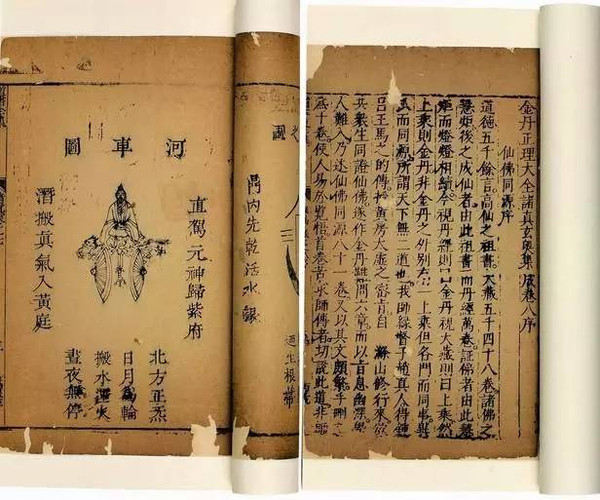 河車圖
直駕元神歸紫府
潛搬眞氣入黃庭
北方正炁
日月為輪
搬水運火
晝夜無停
內先乾活水銀
金丹正理大全諸真玄奧集成卷八序
仙佛同源序
道德五千餘言高仙之祖書大藏五千四十八卷諸佛之
慧炬後之成仙者由此祖書而丹經萬卷証佛者由此慧
炬而燈燈相續今視丹經則曰金丹視大藏則曰上乘然
上乘則金丹非金丹之外別有一上乘但各門而同事異
派而同源所謂天下無二道也我師緣督子趙真人得鍾
呂王馬之的傳於黃房大虛之密旨自 山修行來欲
共衆生同證仙佛遂作金丹難問六章而以言意幽深學
人難入乃述仙佛同源八十一卷又以其文頗繁手刪之
成十卷使人易於覽悟首卷苦求師傳者切說此道非師